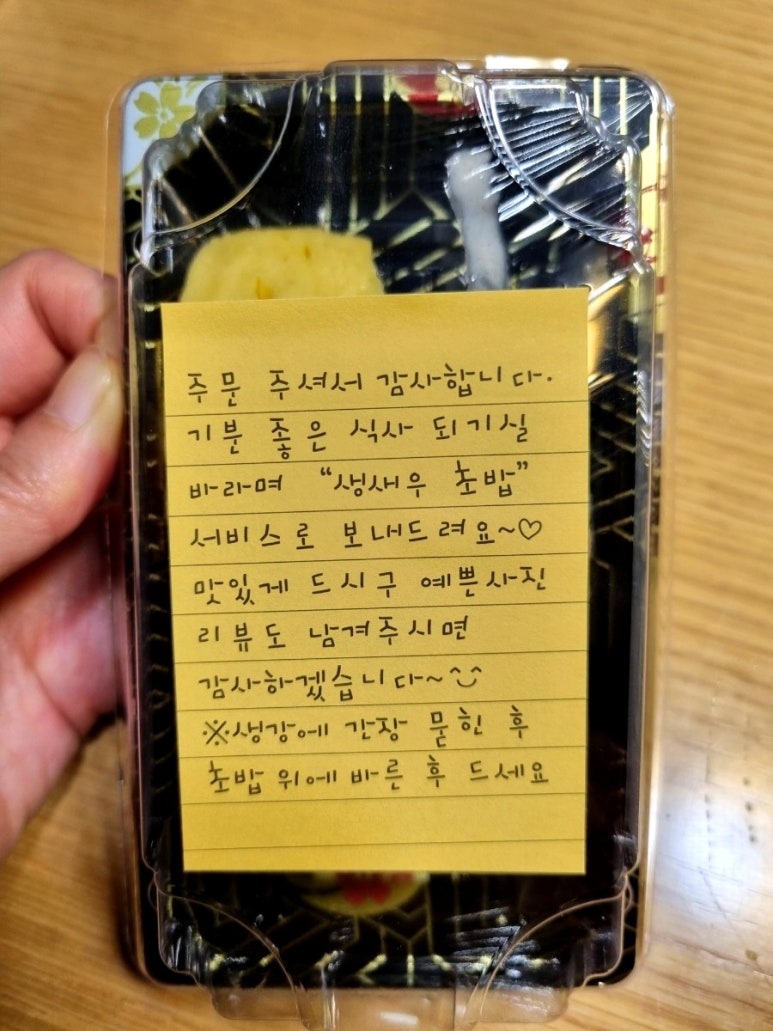 주문 주셔서 감사합니다.
기분 좋은 식사 되기실
바라며 "생새우 초밥"
서비스로 보내드려요~♡
맛있게 드시구 예쁜사진
리뷰도 남겨주시면
감사하겠습니다~^‿^
※생강에 간장 묻힌 후
초밥 위에 바른 후 드세요